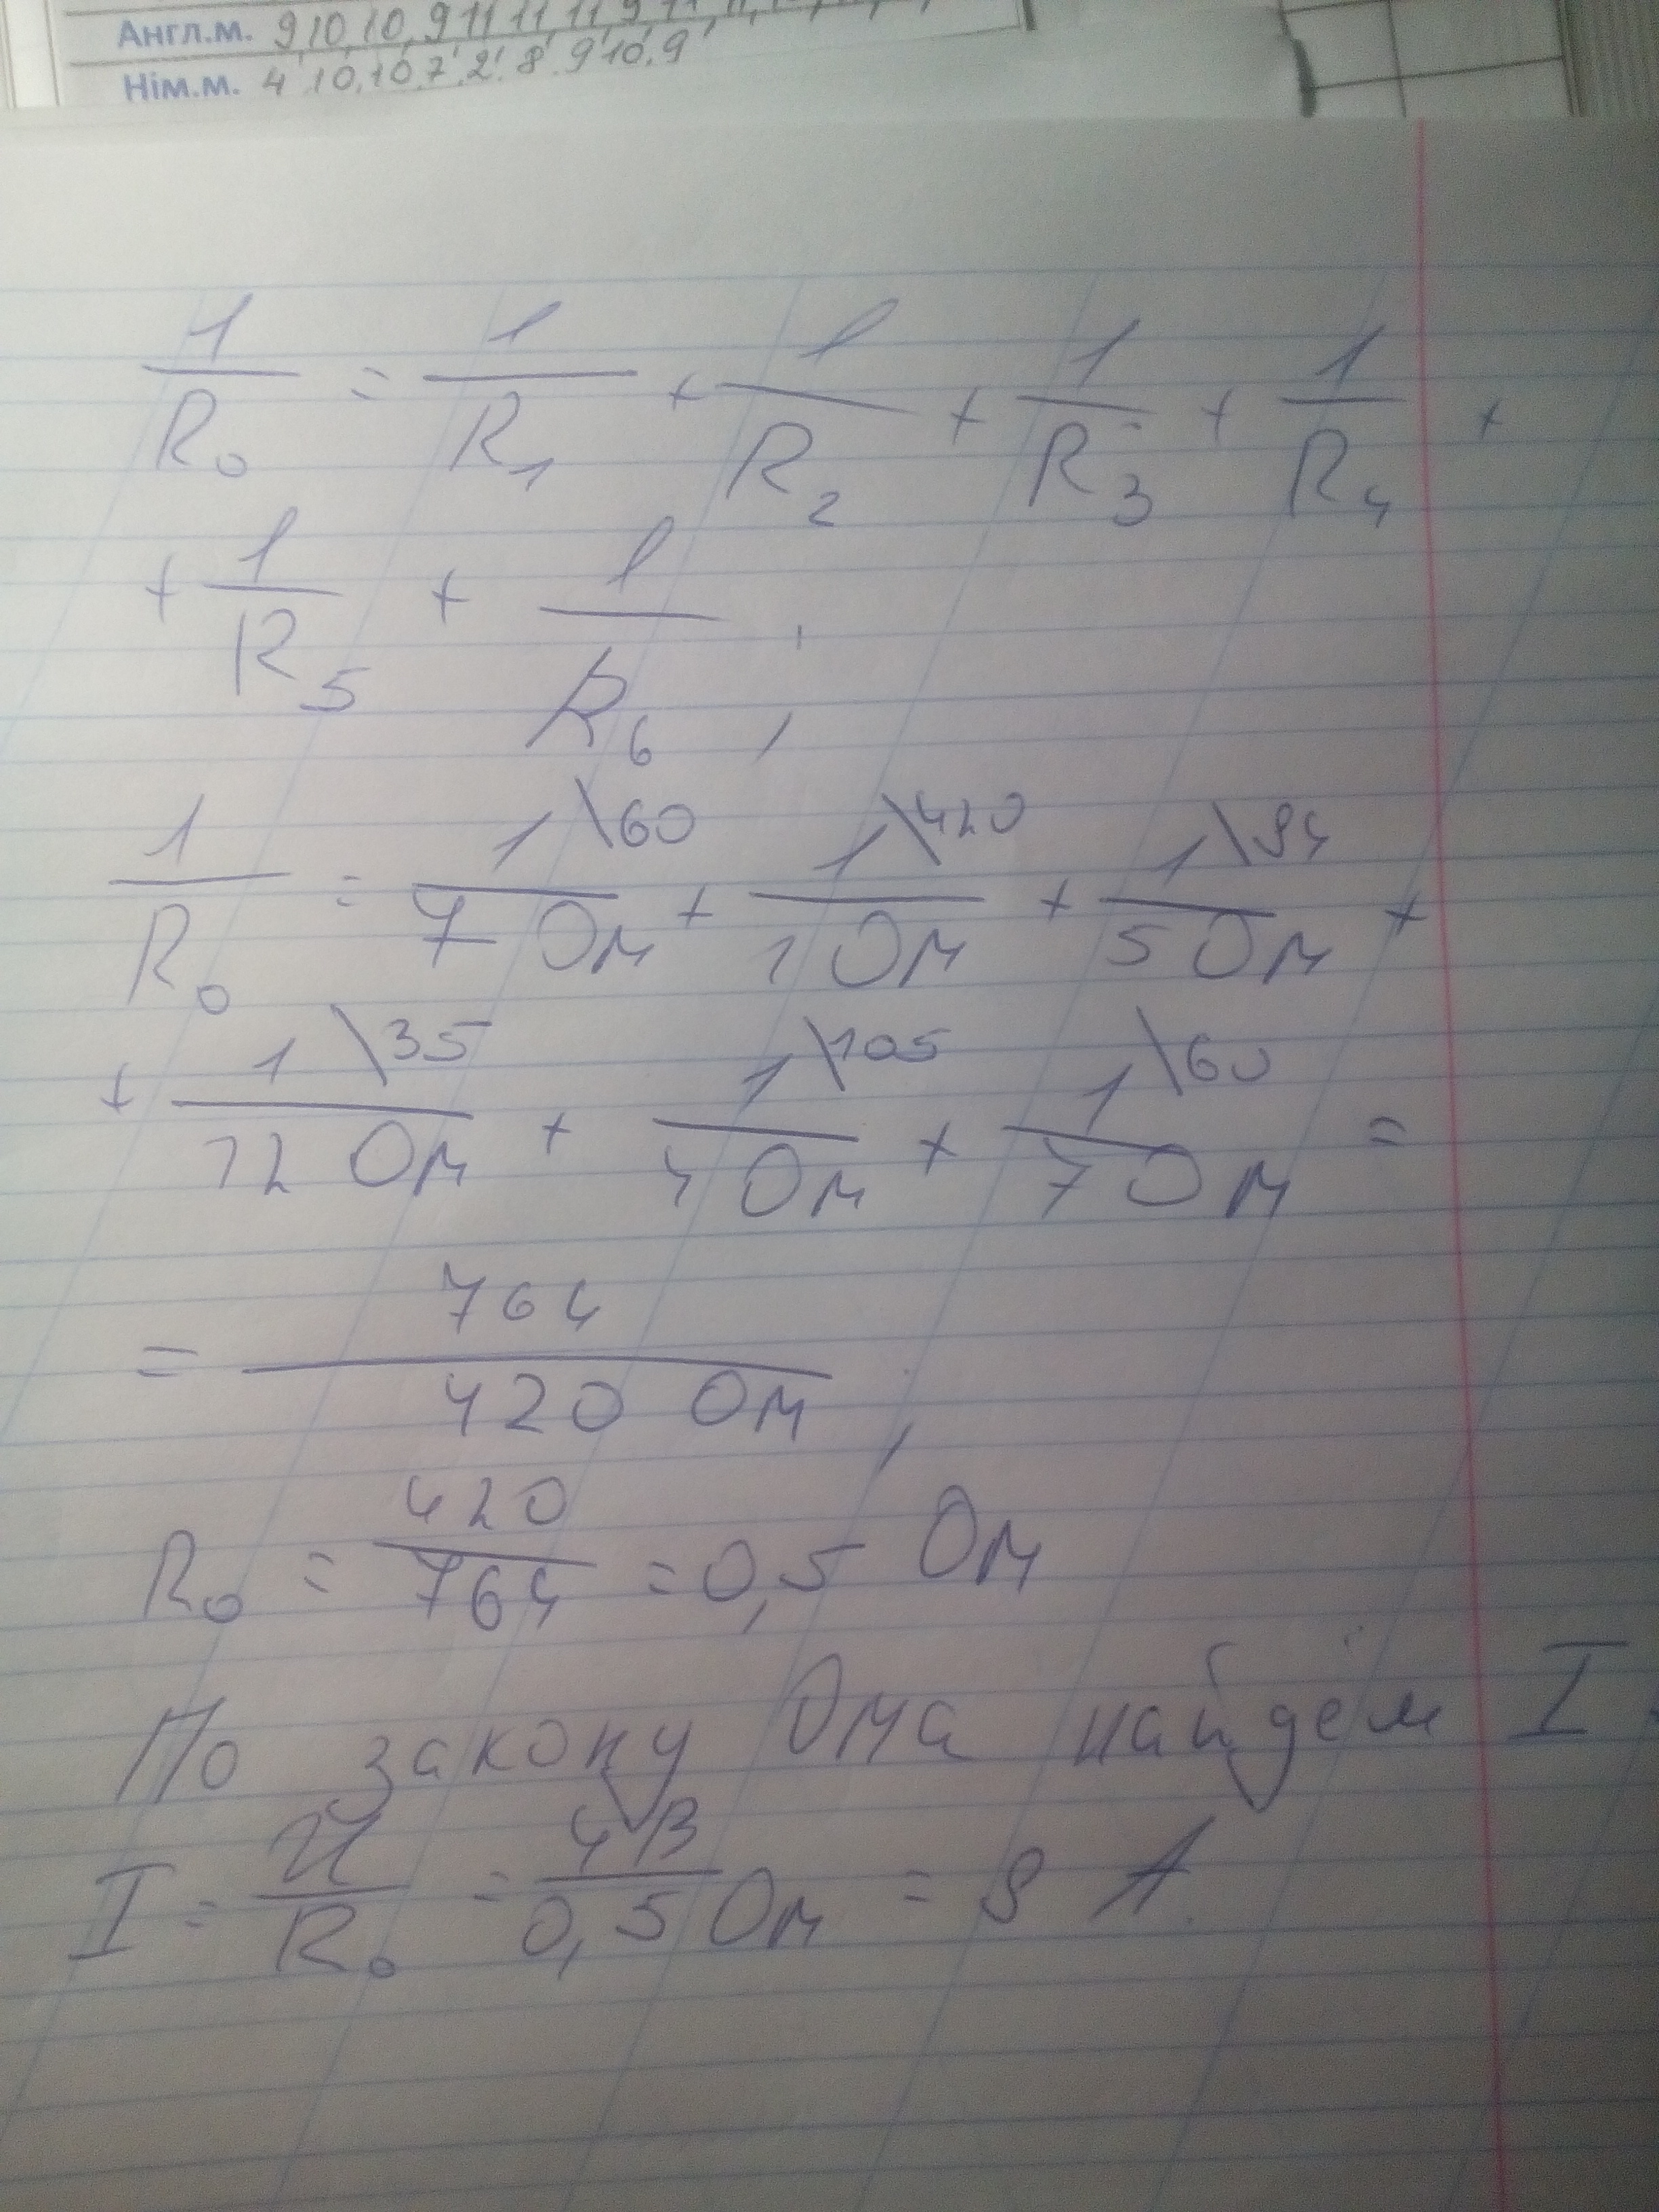 Англ.м. 9,10,10,9 11 11, 11, 9, 11, 11,
Нім.м. 4, 10, 10, 7, 2, 8, 9, 10, 9
1/R₀ = 1/R₁ + 1/R₂ + 1/R₃ + 1/R₄ +
+ 1/R₅ + 1/R₆,
1/R₀ = 1\60/7 Ом + 1\420/1 Ом + 1\84/5 Ом +
+ 1\35/12 Ом + 1\105/4 Ом + 1\60/7 Ом =
= 764/420 Ом,
R₀ = 420/764 = 0,5 Ом
По закону Ома найдём I.
I = U/R₀ = 4В/0,5 Ом = 8 А.